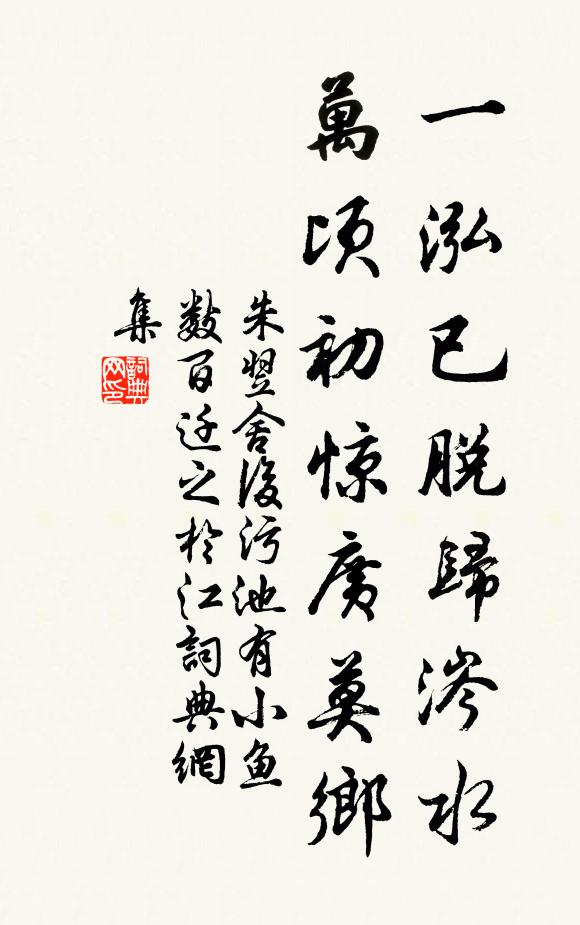 一泓已脱歸涔水
萬頃初惊廣莫鄉
朱翌舍後污池有小鱼
数百迁之於江詞典網
集
詞典
网印